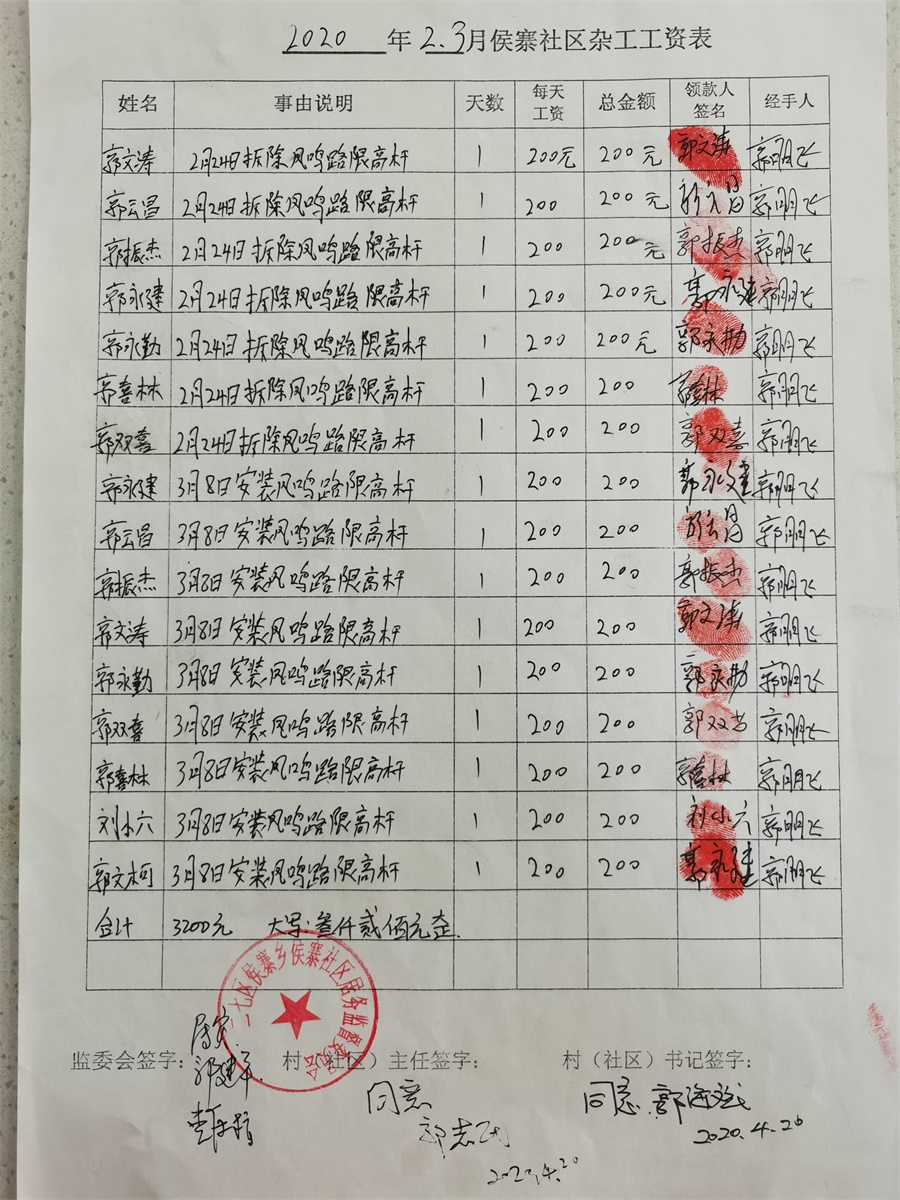 2020 年 2.3月侯寨社区杂工工资表
姓名 事由说明 天数 每天工资 总金额 领款人签名 经手人
郭文涛 2月24日拆除凤鸣路限高杆 1 200元 200元 郭文涛 郭明飞
郭云昌 2月24日拆除凤鸣路限高杆 1 200 200元 郭云昌 郭明飞
郭振杰 2月24日拆除凤鸣路限高杆 1 200 200元 郭振杰 郭明飞
郭永建 2月24日拆除凤鸣路限高杆 1 200 200元 郭永建 郭明飞
郭永勤 2月24日拆除凤鸣路限高杆 1 200 200元 郭永勤 郭明飞
郭喜林 2月24日拆除凤鸣路限高杆 1 200 200 郭喜林 郭明飞
郭双喜 2月24日拆除凤鸣路限高杆 1 200 200 郭双喜 郭明飞
郭永建 3月8日安装凤鸣路限高杆 1 200 200 郭永建 郭明飞
郭云昌 3月8日安装凤鸣路限高杆 1 200 200 郭云昌 郭明飞
郭振杰 3月8日安装凤鸣路限高杆 1 200 200 郭振杰 郭明飞
郭文涛 3月8日安装凤鸣路限高杆 1 200 200 郭文涛 郭明飞
郭永勤 3月8日安装凤鸣路限高杆 1 200 200 郭永勤 郭明飞
郭双喜 3月8日安装凤鸣路限高杆 1 200 200 郭双喜 郭明飞
郭喜林 3月8日安装凤鸣路限高杆 1 200 200 郭喜林 郭明飞
刘小六 3月8日安装凤鸣路限高杆 1 200 200 刘小六 郭明飞
郭文柯 3月8日安装凤鸣路限高杆 1 200 200 郭永建 郭明飞
合计 3200元 大写:叁仟贰佰元整.
二七区侯寨乡侯寨社区居务监督委员会
监委会签字: 村（社区）主任签字: 村（社区）书记签字:
郭建平
同意 同意
郭志民
2020.4.20 2020.4.20